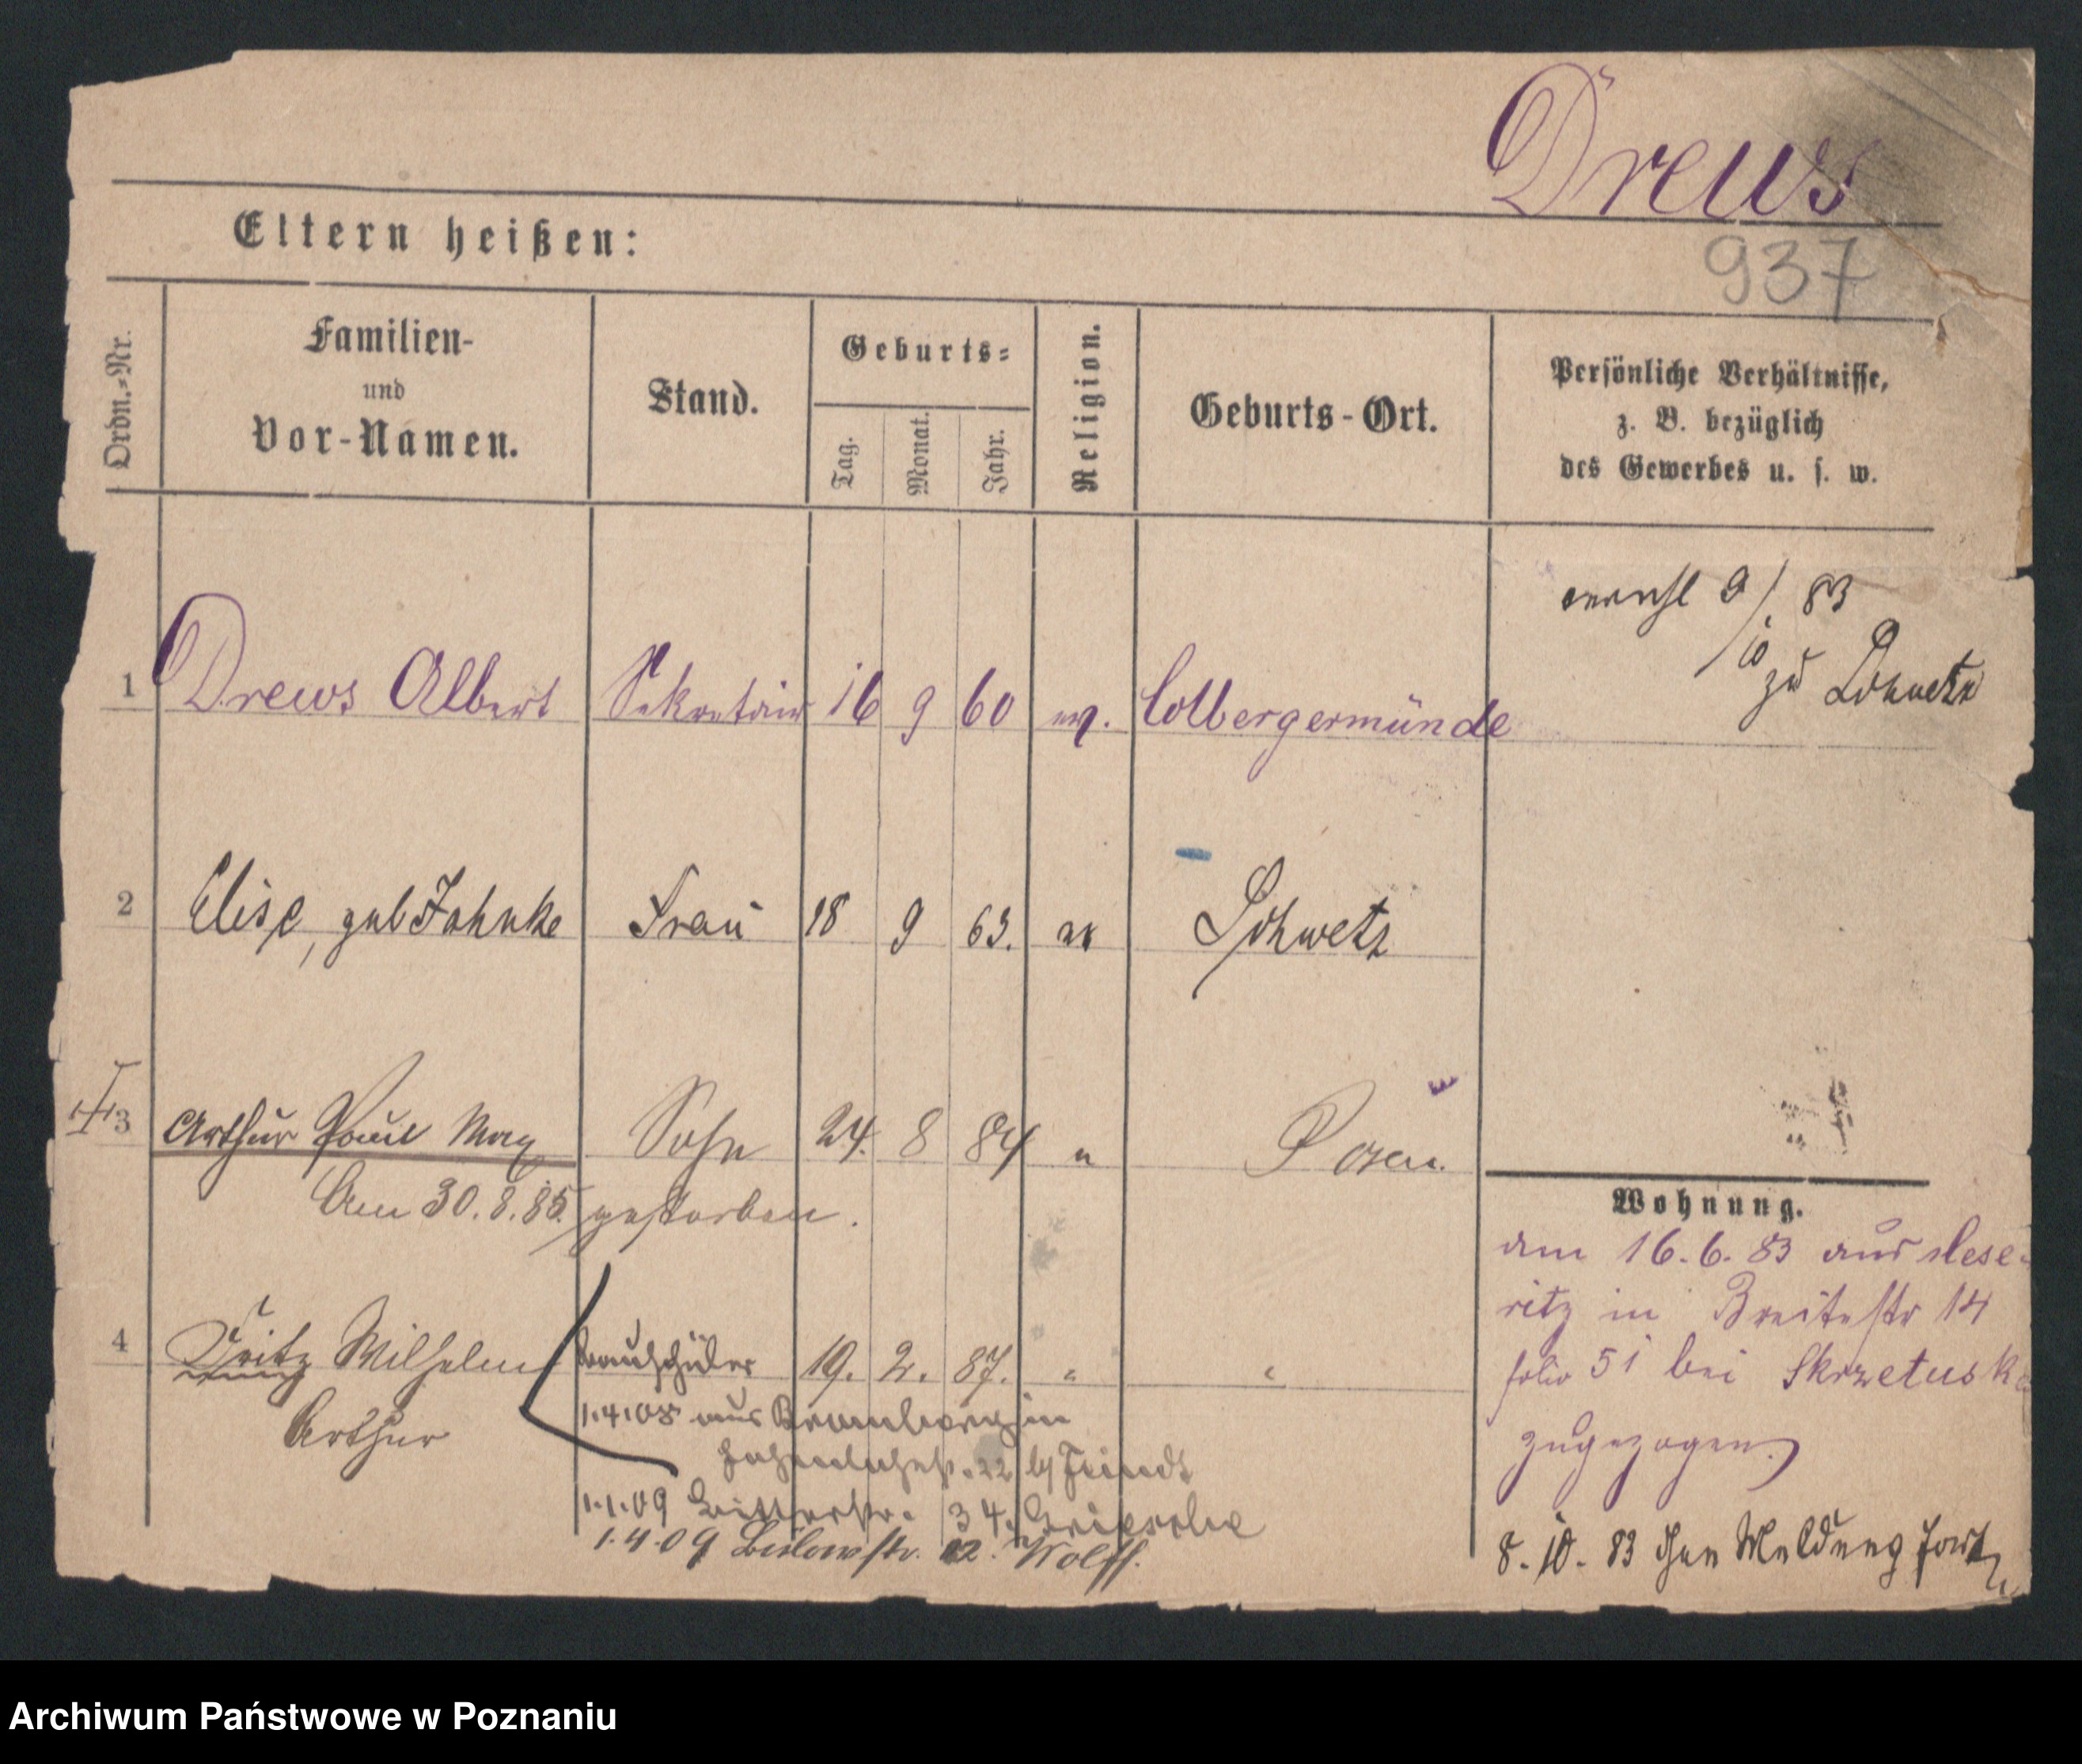 Drews
937
Eltern heißen:
Ordn.=Nr.
Familien-
und
Vor-Namen.
Stand.
Geburts=
Tag.
Monat.
Jahr.
Religion.
Geburts-Ort.
Persönliche Verhältnisse,
z. B. bezüglich
des Gewerbes u. s. w.
1 Drews Albert Sekretair 16 9 60 ev. Colbergermünde
verehl 9/10 83
zu Schwetz
2 Elise, geb Jahnke Frau 18 9 63. ev Schwetz
3 Arthur Paul Max Sohn 24. 8 84 " Posen.
Am 30.8.85 gestorben.
4 Fritz Wilhelm Bauschüler 19. 2. 87. " "
Arthur
1.4.08 aus Bromberg in
22 b/ Feindt
1.1.09 Ritterstr. 34.
1.4.09 Bülowstr. 12. Wolff.
Wohnung.
am 16.6.83 aus Mese-
ritz in Breitestr 14
folio 51 bei Skrzetuska
zugezogen.
8.10.83 ohne Meldung fort
Archiwum Państwowe w Poznaniu